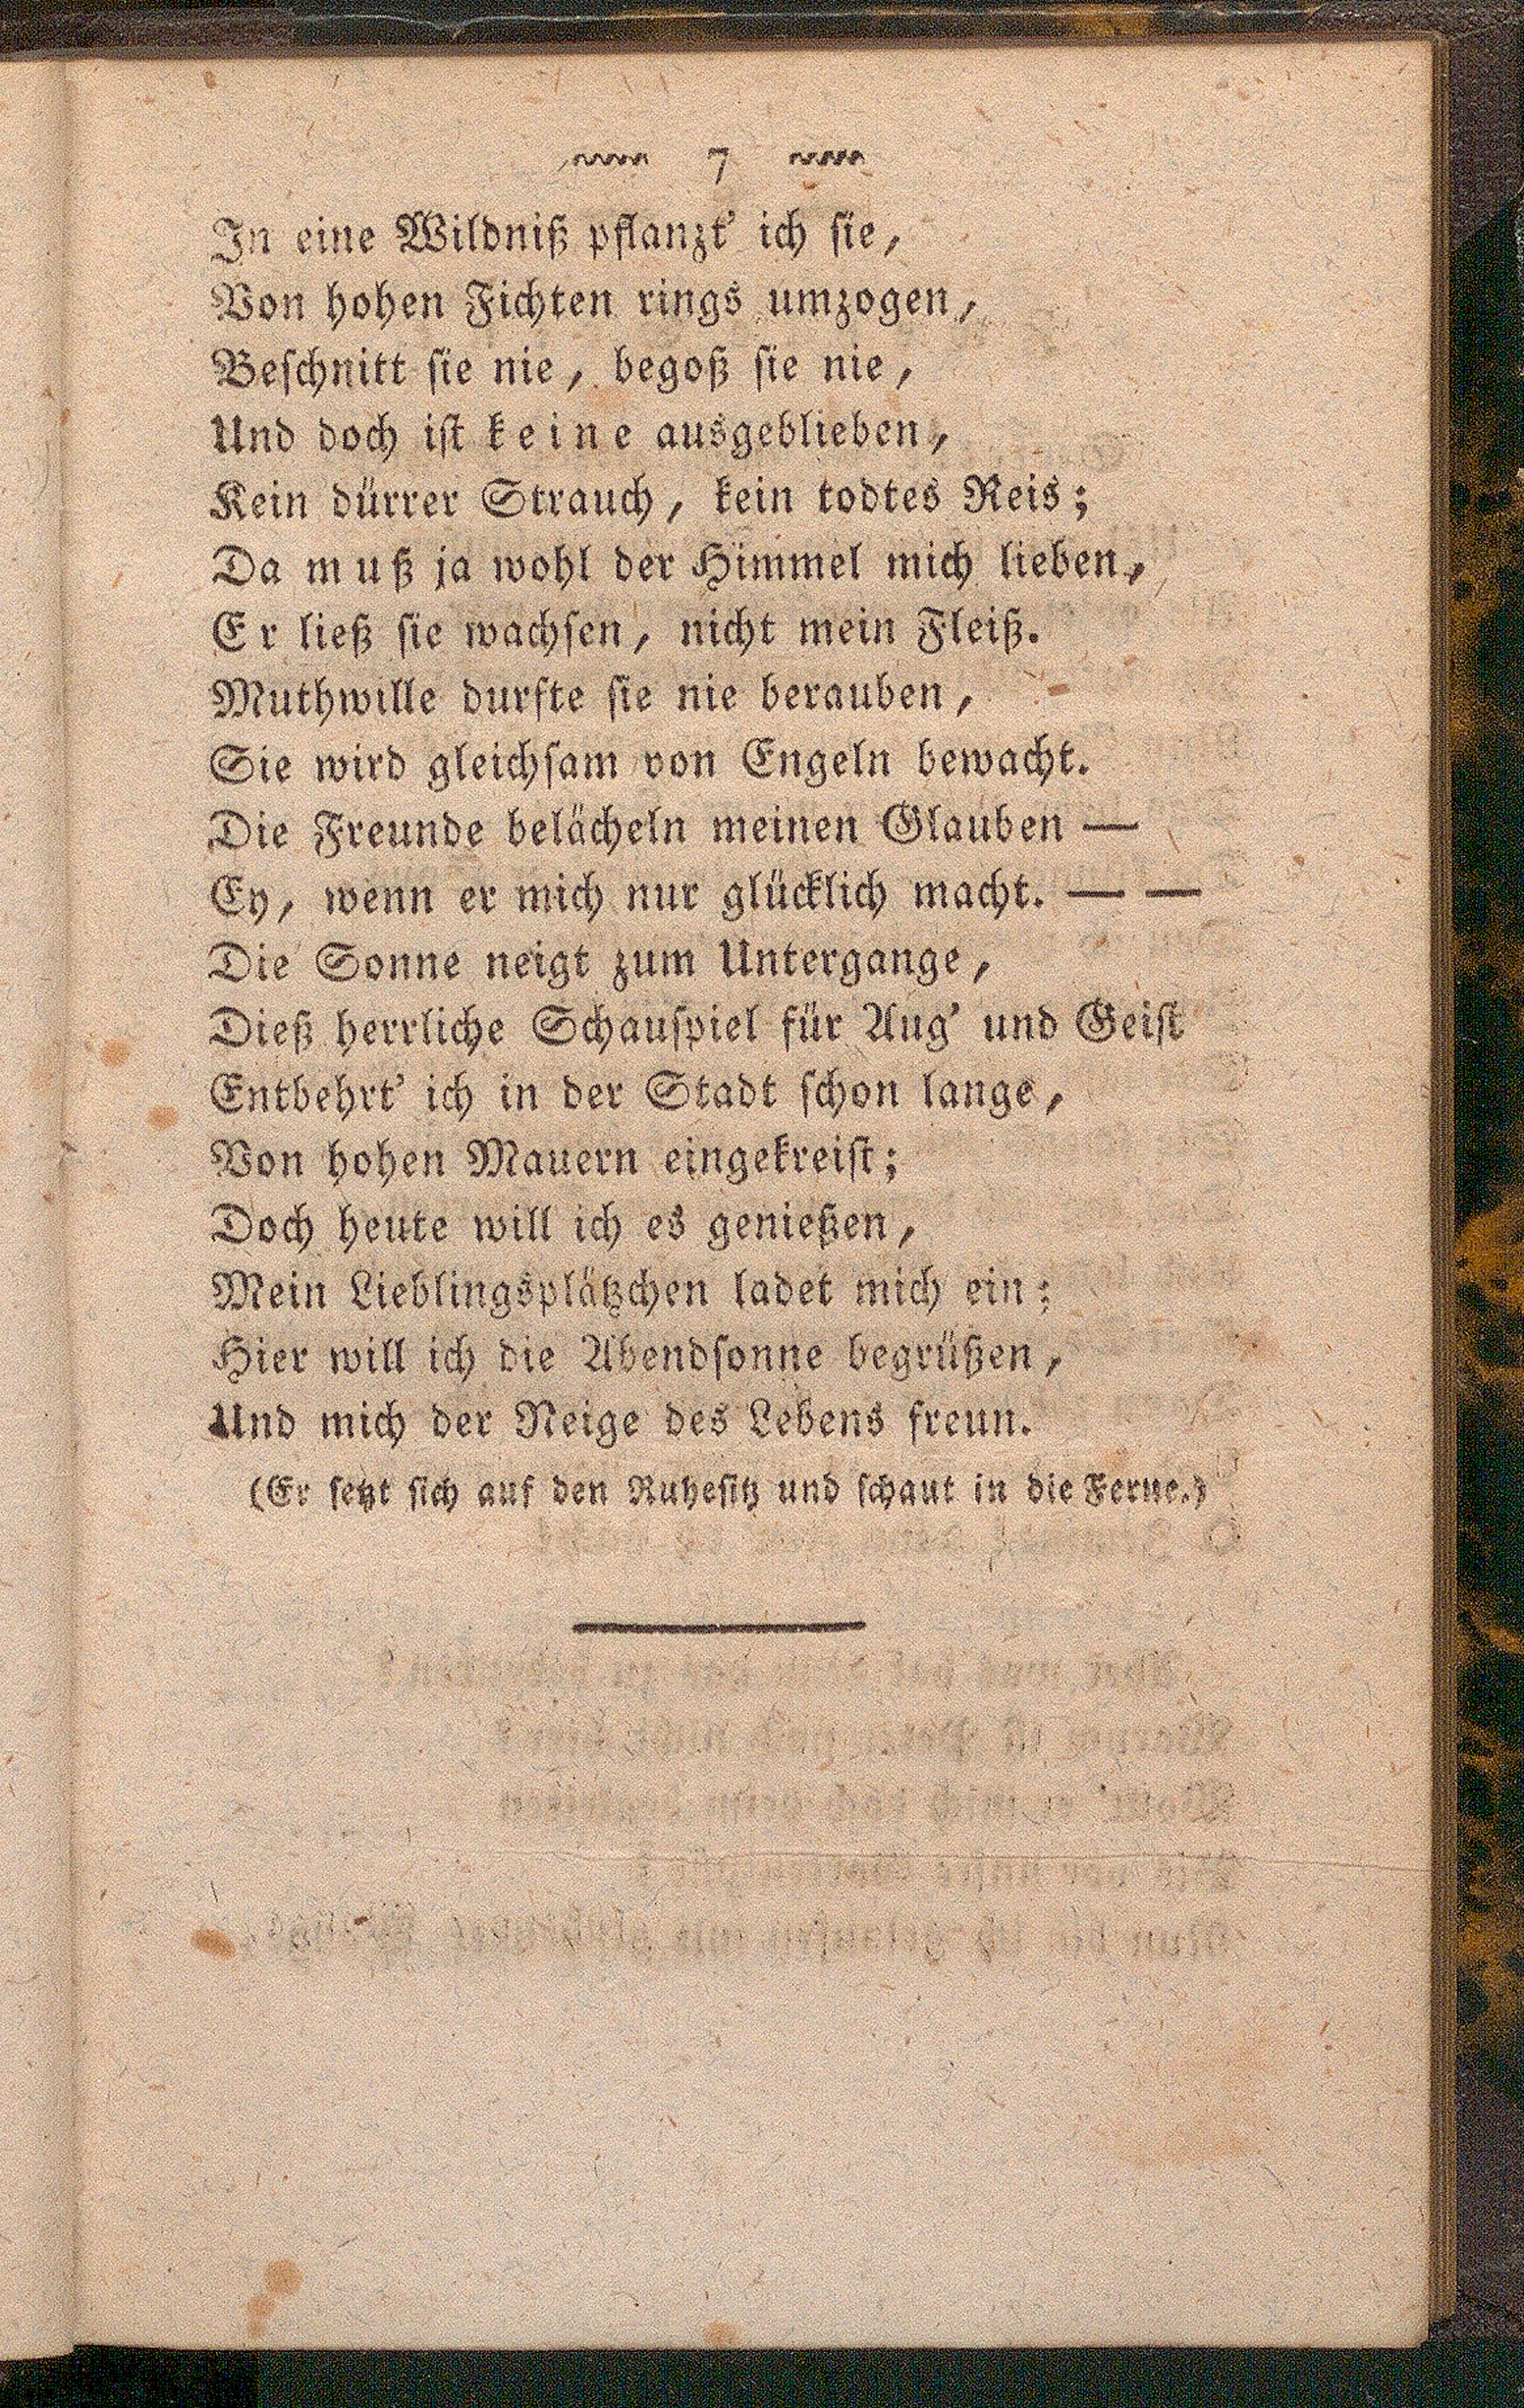 7
In eine Wildniß pflanzt' ich sie,
Von hohen Fichten rings umzogen,
Beschnitt sie nie, begoß sie nie,
Und doch ist keine ausgeblieben,
Kein dürrer Strauch, kein todtes Reis;
Da muß ja wohl der Himmel mich lieben,
Er ließ sie wachsen, nicht mein Fleiß.
Muthwille durfte sie nie berauben,
Sie wird gleichsam von Engeln bewacht.
Die Freunde belächeln meinen Glauben —
Ey, wenn er mich nur glücklich macht. — —
Die Sonne neigt zum Untergange,
Dieß herrliche Schauspiel für Aug' und Geist
Entbehrt' ich in der Stadt schon lange,
Von hohen Mauern eingekreist;
Doch heute will ich es genießen,
Mein Lieblingsplätzchen ladet mich ein;
Hier will ich die Abendsonne begrüßen,
Und mich der Neige des Lebens freun.
(Er setzt sich auf den Ruhesitz und schaut in die Ferne.)